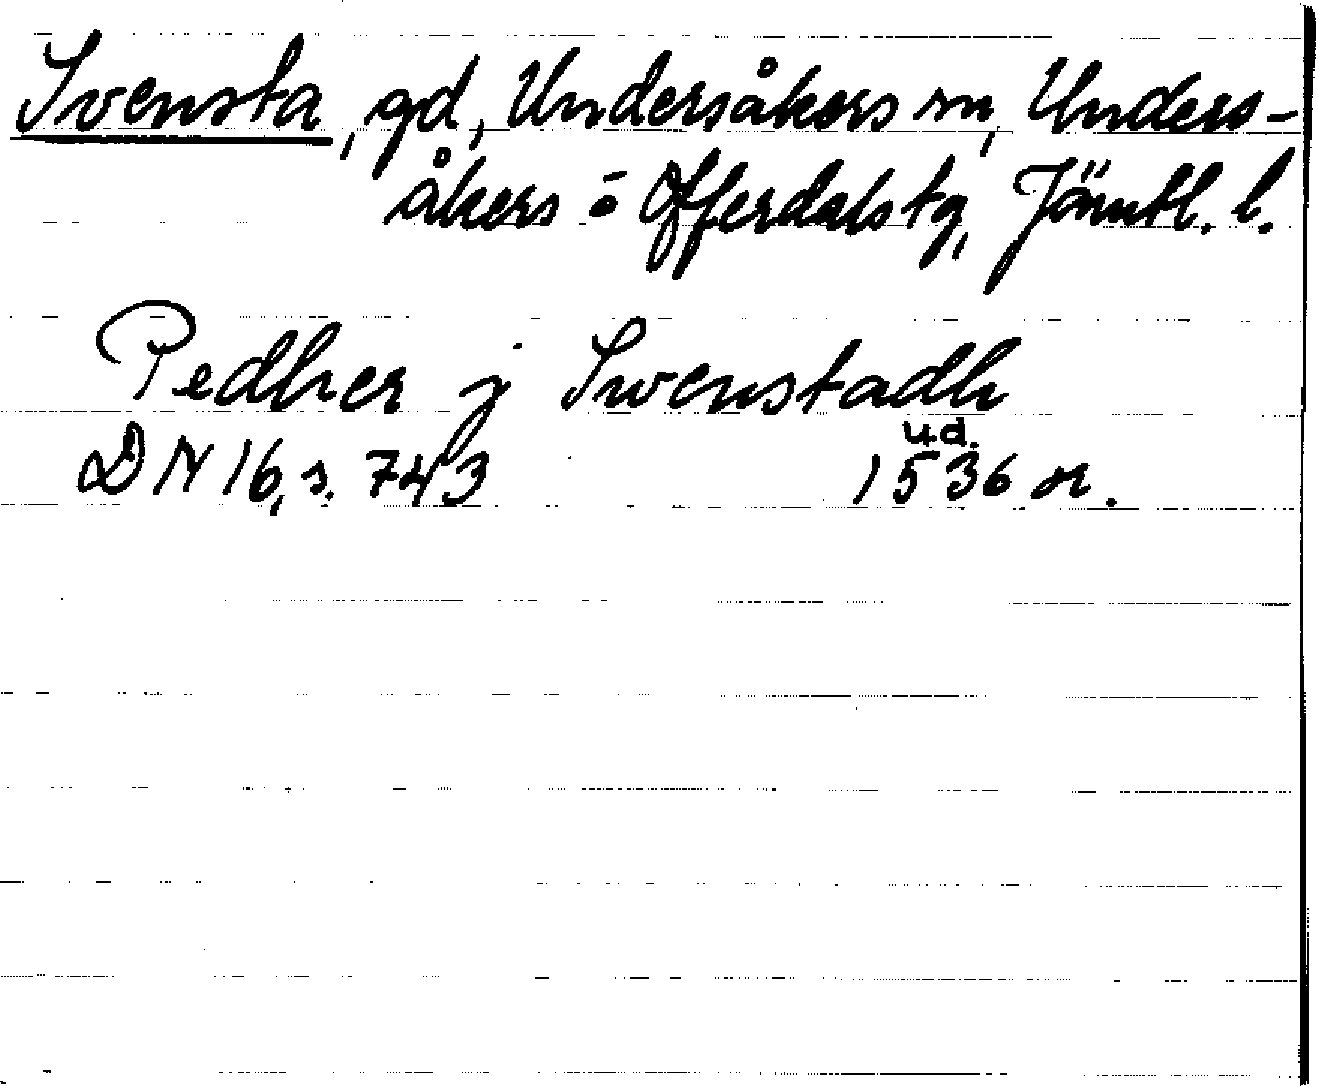 Svensta, gd, Undersåkers sn, Unders-
åkers o Offerdals tg, Jämtl. l.
Pedher j Swenstadh
u.d.
DN 16, s. 743 1536 or.